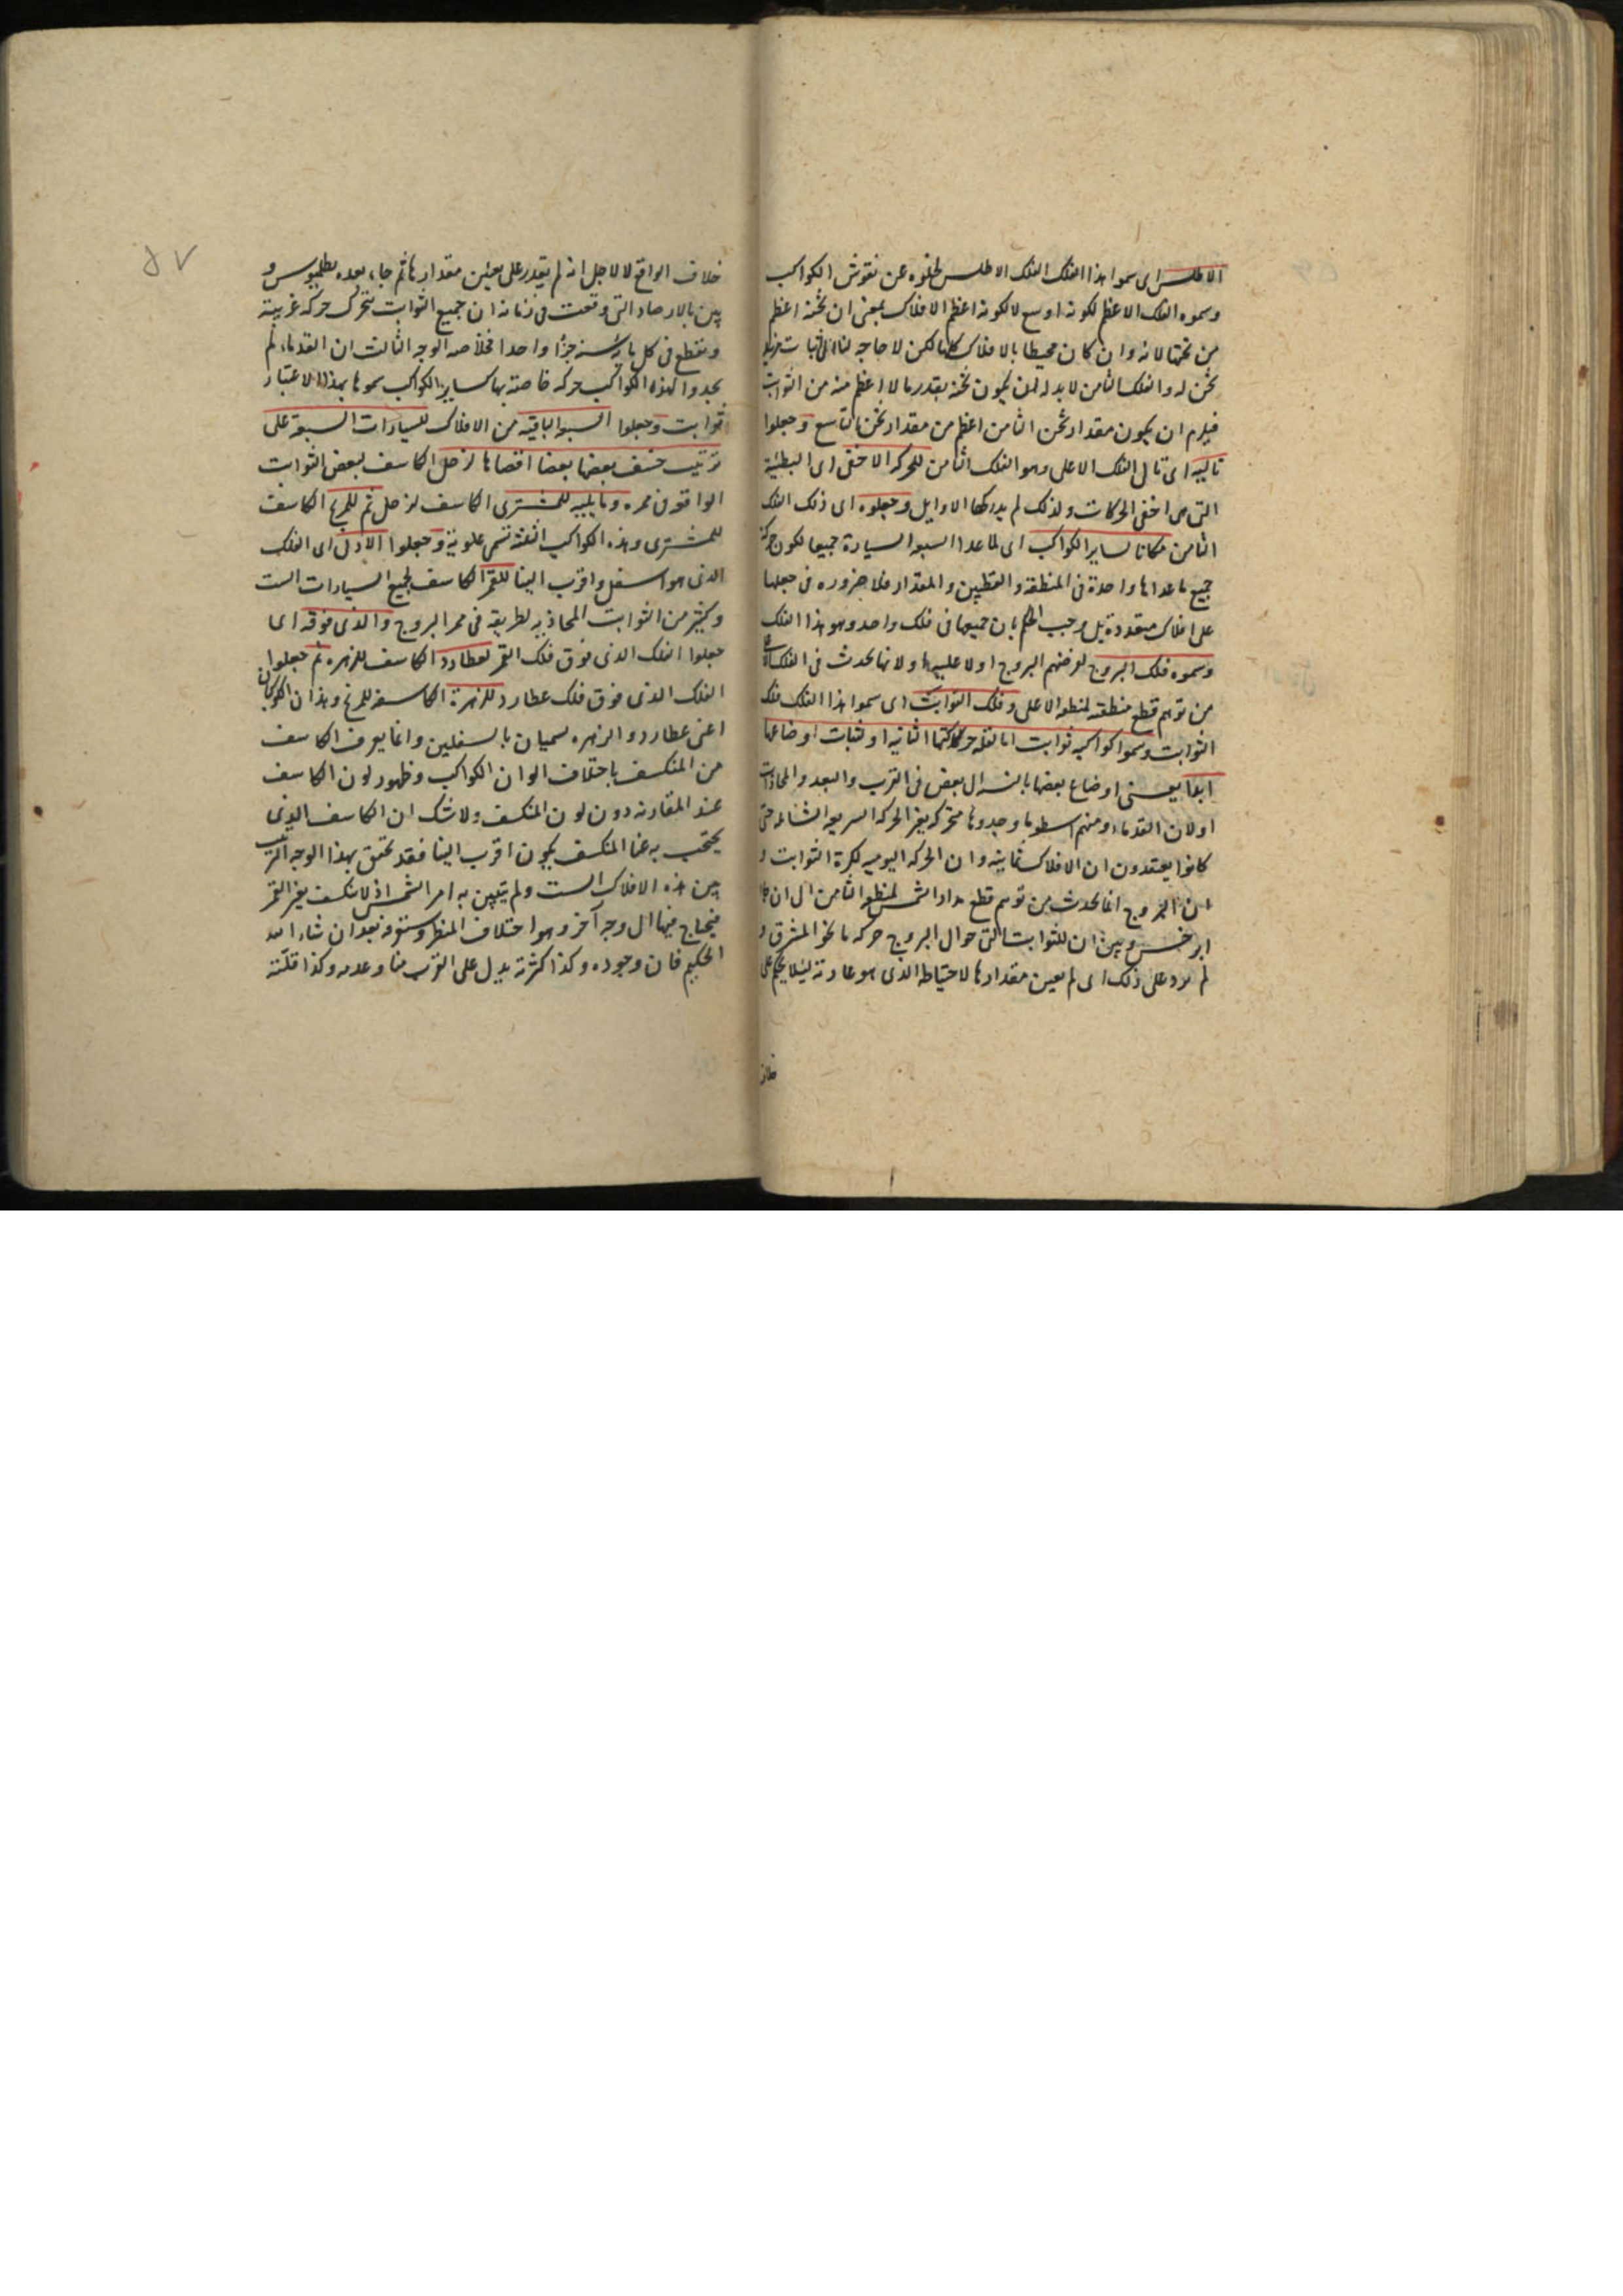 الاطلس اى سموا هذا الفلك الفلك الاطلس لخلوه عن نقوش الكواكب
وسموه الفلك الاعظم لكونه اوسع لا لكونه اعظم الافلاك بمعنى ان ثخنه اعظم
من ثخنها لانه وان كان محيطا بالافلاك كلها لكن لا حاجه لنا الى اثبات مزيد
ثخن له والفلك الثامن لا بد له ان يكون ثخنه بقدر ما لا اعظم منه من الثوابت
فيلزم ان يكون مقدار ثخن الثامن اعظم من مقدار ثخن التاسع وجعلوا
تاليه اى تالى الفلك الاعلى وهو الفلك الثامن للحركه الاخفى اى البطيئة
التى هى اخفى الحركات ولذلك لم يدركها الاوايل وجعلوه اى ذلك الفلك
الثامن مكانا لساير الكواكب اى لما عدا السبعه السيارة جميعا لكون حركة
جميع ما عداها واحدة فى المنطقة والقطبين والمقدار فلا ضروره فى جعلها
على افلاك متعددة بل وجب الحكم بان جميعها فى فلك واحد وهو هذا الفلك
وسموه فلك البروج لفرضهم البروج اولا عليه او لانها تحدث فى الفلك الاعلى
من توهم قطع منطقته لمنطقه الاعلى وفلك الثوابت اى سموا هذا الفلك فلك
الثوابت وسموا كواكبه ثوابت اما لقله حركتها الثانيه او لثبات اوضاعها
ابدا يعنى اوضاع بعضها بالنسبه الى بعض فى القرب والبعد والمحاذات
او لان القدماء ومنهم ارسطو ما وجدوها متحركه بغير الحركه السريعه الشامله حتى
كانوا يعتقدون ان الافلاك ثمانيه وان الحركه اليوميه لكرة الثوابت و
ان البروج انما تحدث من توهم قطع مدار الشمس لمنطقه الثامن الى ان جاء
ابرخس وبين ان للثوابت التى حوال البروج حركه ما نحو المشرق و
لم يزد على ذلك اى لم يعين مقدارها لاحتياطه الذى هو عادته لئلا يحكم على
خلاف
خلاف الواقع لا لاجل انه لم يقدر على تعيين مقدارها ثم جاء بعده بطلميوس و
بين بالارصاد التى وقعت فى زمانه ان جميع الثوابت تتحرك حركه غربية
وتقطع فى كل مائة سنه جزءا واحدا فخلاصه الوجه الثالث ان القدماء لم
يجدوا لهذه الكواكب حركه خاصة بها كساير الكواكب سموها بهذا الاعتبار
ثوابت وجعلوا السبعه الباقيه من الافلاك للسيارات السبعة على
ترتيب خسف بعضها بعضا اقصاها لزحل الكاسف لبعض الثوابت
الواقعه فى ممره وما يليه للمشترى الكاسف لزحل ثم للمريخ الكاسف
للمشترى وهذه الكواكب الثلثة تسمى علوية وجعلوا الادنى اى الفلك
الذى هو اسفل واقرب الينا للقمر الكاسف لجميع السيارات الست
وكثير من الثوابت المحاذيه لطريقته فى ممر البروج والذى فوقه اى
جعلوا الفلك الذى فوق فلك القمر لعطارد الكاسف للزهره ثم جعلوا
الفلك الذى فوق فلك عطارد للزهرة الكاسفه للمريخ وهذان الكوكبان
اعنى عطارد والزهره يسميان بالسفليين وانما يعرف الكاسف
من المنكسف باختلاف الوان الكواكب وظهور لون الكاسف
عند المقارنه دون لون المنكسف ولا شك ان الكاسف الذى
يحتجب به عنا المنكسف يكون اقرب الينا فقد تحقق بهذا الوجه الترتيب
بين هذه الافلاك الست ولم يتبين به امر الشمس اذ لا تنكسف بغير القمر
فيحتاج فيها الى وجه آخر وهو اختلاف المنظر وستعرفه بعد ان شاء الله
الحكيم فان وجوده وكذا كثرته يدل على القرب منا وعدمه وكذا قلته